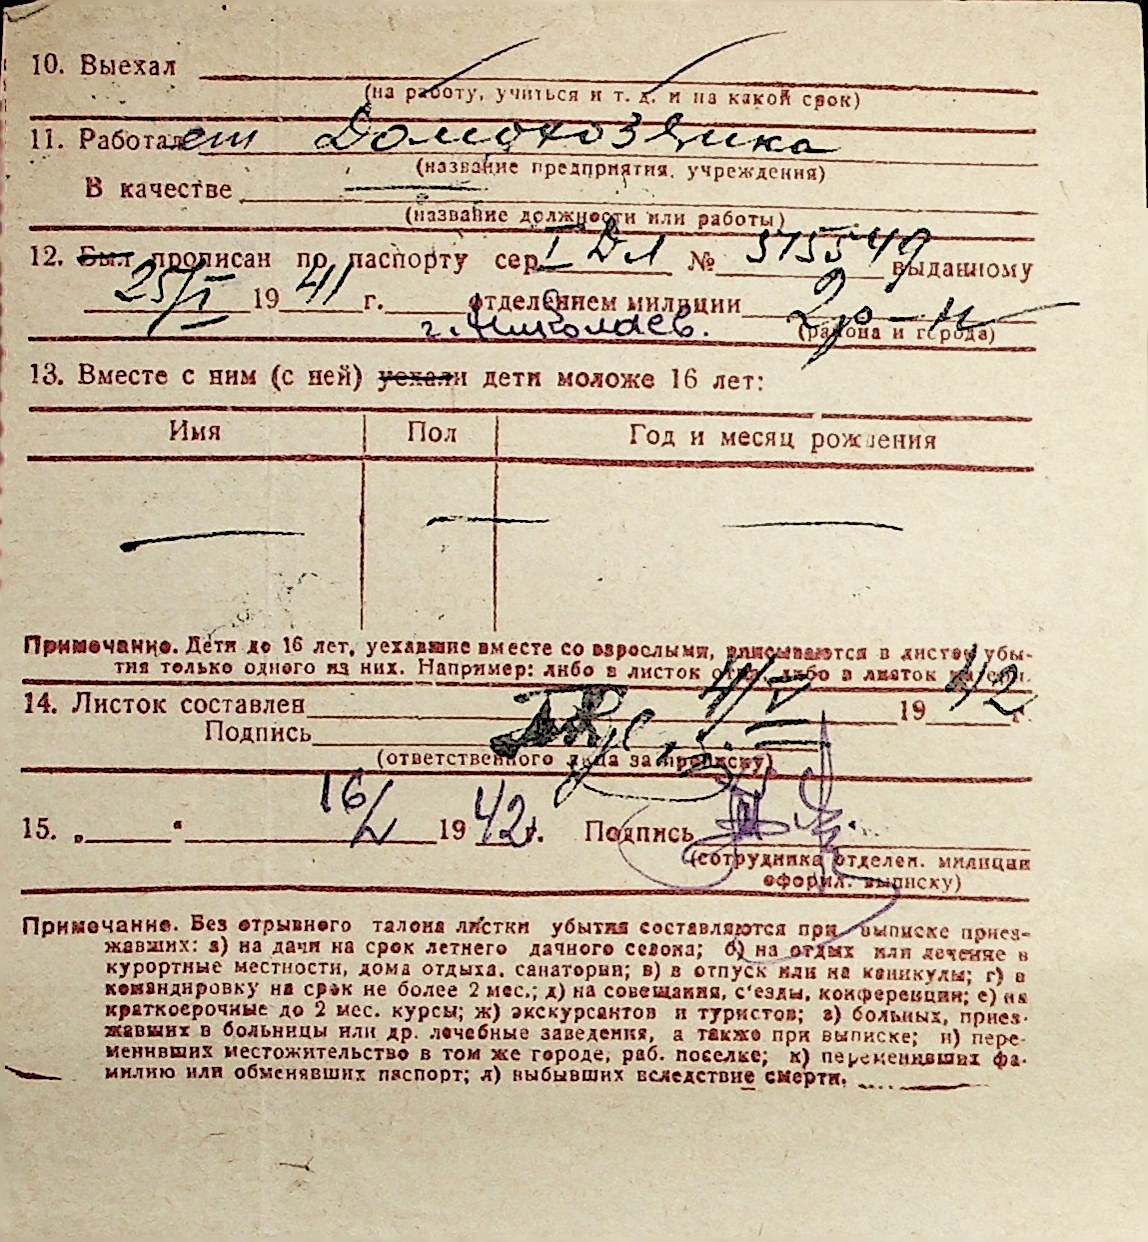 10. Выехал
(на работу, учиться и т. д. и на какой срок)
11. Работает Домохозяика
(название предприятия, учреждения)
В качестве
(название должности или работы)
12. Был прописан по паспорту сер. I ДЛ № 515549 выданному
25/I 1941 г. отделением милиции 2 р-н
г. Николаев. (района и города)
13. Вместе с ним (с ней) уехали дети моложе 16 лет:
Имя Пол Год и месяц рождения
Примечание. Дети до 16 лет, уехавшие вместе со взрослыми, вписываются в листок убы-
тия только одного из них. Например: либо в листок отца, либо в листок матери.
14. Листок составлен 4/V 1942 г.
Подпись
(ответственного лица за прописку)
15. „ “ 16/V 1942 г. Подпись
(сотрудника отделен. милиции
оформ. выписку)
Примечание. Без отрывного талона листки убытия составляются при выписке приез-
жавших: а) на дачи на срок летнего дачного сезона; б) на отдых или лечение в
курортные местности, дома отдыха, санатории; в) в отпуск или на каникулы; г) в
командировку на срок не более 2 мес.; д) на совещания, с'езды, конференции; е) на
краткосрочные до 2 мес. курсы; ж) экскурсантов и туристов; з) больных, приез-
жавших в больницы или др. лечебные заведения, а также при выписке; и) пере-
менивших местожительство в том же городе, раб. поселке; к) переменивших фа-
милию или обменявших паспорт; л) выбывших вследствие смерти.